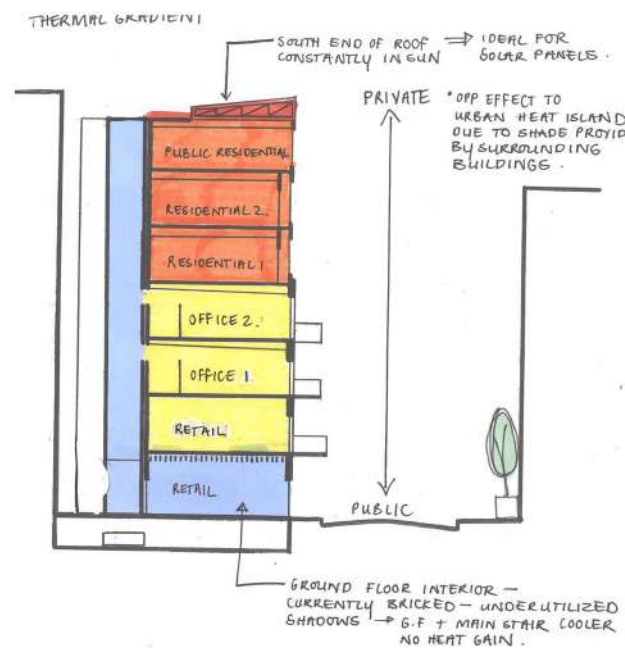 THERMAL GRADIENT
SOUTH END OF ROOF ⇒ IDEAL FOR
CONSTANTLY IN SUN SOLAR PANELS.
PRIVATE
*OPP EFFECT TO
URBAN HEAT ISLAND
DUE TO SHADE PROVID
BY SURROUNDING
BUILDINGS.
PUBLIC RESIDENTIAL
RESIDENTIAL 2.
RESIDENTIAL 1
OFFICE 2.
OFFICE 1.
RETAIL
RETAIL
PUBLIC
GROUND FLOOR INTERIOR —
CURRENTLY BRICKED — UNDERUTILIZED
SHADOWS → G.F + MAIN STAIR COOLER
NO HEAT GAIN.